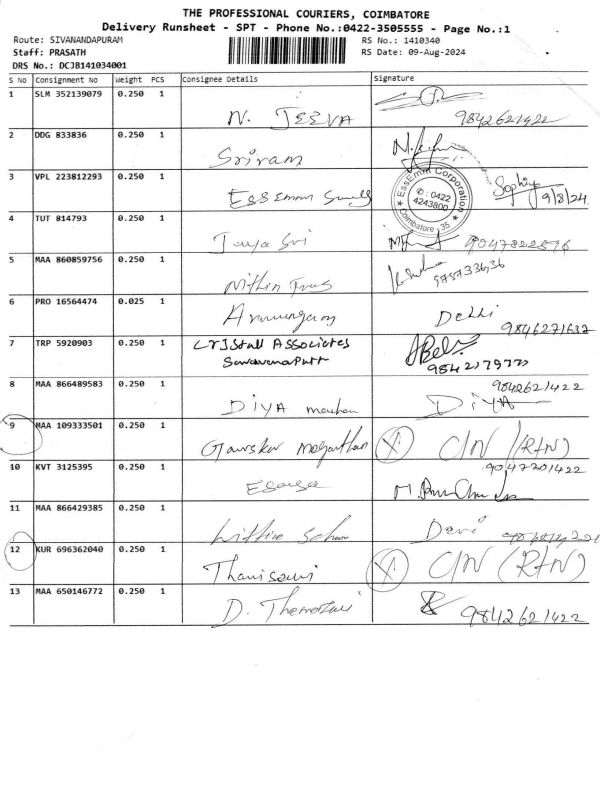 THE PROFESSIONAL COURIERS, COIMBATORE
Delivery Runsheet - SPT - Phone No.:0422-3505555 - Page No.:1
Route: SIVANANDAPURAM RS No.: 1410340
Staff: PRASATH RS Date: 09-Aug-2024
DRS No.: DCJB141034001
S No Consignment No Weight PCS Consignee Details Signature
1 SLM 352139079 0.250 1
N. JEEVA 9842621422
2 DDG 833836 0.250 1
Sriram
3 VPL 223812293 0.250 1
EssEmm Corporation
✆ : 0422
4243800
Coimbatore - 35
Sophiya
9/8/24
4 TUT 814793 0.250 1
Jaya Sri 9047822596
5 MAA 860859756 0.250 1
Nithin
6 PRO 16564474 0.025 1
Arumugam Delhi
9846271637
7 TRP 5920903 0.250 1
Associates
8 MAA 866489583 0.250 1 9842621422
DIYA DIYA
9 MAA 109333501 0.250 1
C/N (RTN)
10 KVT 3125395 0.250 1 9047201422
11 MAA 866429385 0.250 1
Devi
12 KUR 696362040 0.250 1
C/N (RTN)
13 MAA 650146772 0.250 1
D. 9842621422